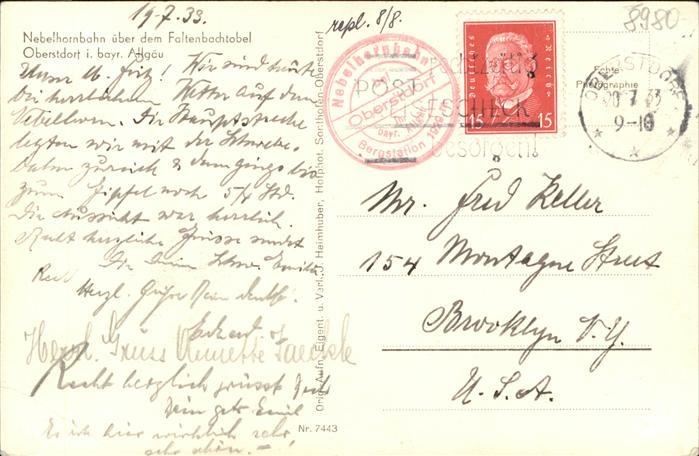 19.7.33.
repl. 8/8.
8980
Nebelhornbahn über dem Faltenbachtobel
Oberstdorf i. bayr. Allgäu
Wir sind heute
bei herrlichem Wetter auf dem
Nebelhorn. Die Hauptstrecke
legten wir mit der
zurück &
zum Gipfel noch 5/4 Std.
Die Aussicht war herrlich.
Recht herzliche Grüsse sendet
Dir Deine
Herzl. Grüsse
Herzl. Gruss Annette
Recht herzlich grüsst Dich
Dein Emil
Es ist hier wirklich sehr
sehr schön. –
Orig. Aufn. Eigent. u. Verl. J. Heimhuber, Hofphot. Sonthofen-Oberstdorf
Nr. 7443
Nebelhornbahn
bei
Oberstdorf
bayr.
Bergstation
POST
besorgen!
Deutsches Reich
15 15
Echte
Photographie
OBERSTDORF
20.7.33
9-10
Mr. Fred Keller
154 Montague Street
Brooklyn N.Y.
U.S.A.